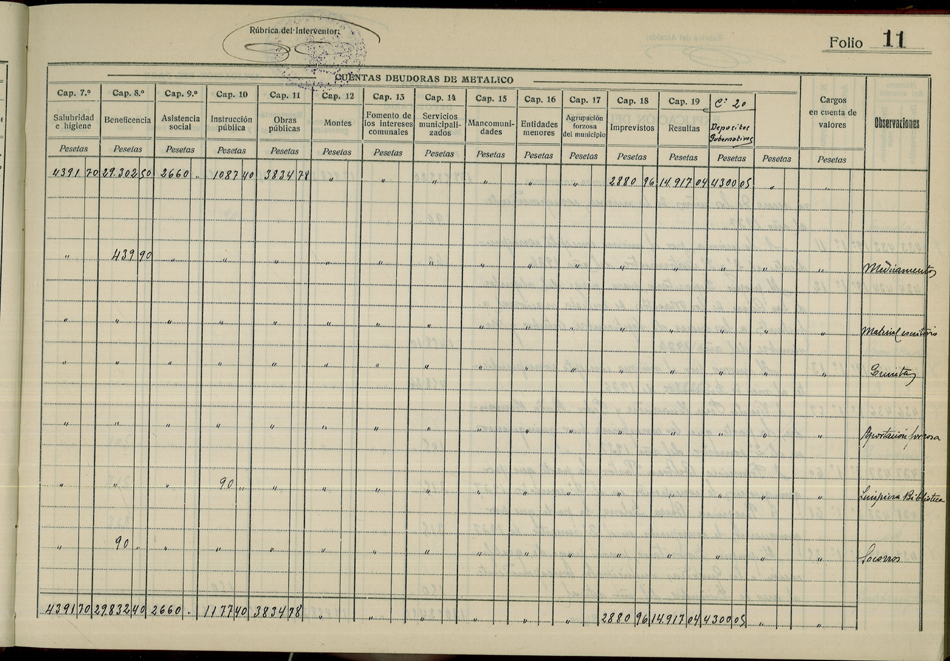 Rúbrica del Interventor,
Folio 11
CUENTAS DEUDORAS DE METALICO
Cap. 7.º Cap. 8.º Cap. 9.º Cap. 10 Cap. 11 Cap. 12 Cap. 13 Cap. 14 Cap. 15 Cap. 16 Cap. 17 Cap. 18 Cap. 19 C.º 20
Salubridad e higiene Beneficencia Asistencia social Instrucción pública Obras públicas Montes Fomento de los intereses comunales Servicios municipalizados Mancomunidades Entidades menores Agrupación forzosa del municipio Imprevistos Resultas Depositos Gobernativos Cargos en cuenta de valores Observaciones
Pesetas Pesetas Pesetas Pesetas Pesetas Pesetas Pesetas Pesetas Pesetas Pesetas Pesetas Pesetas Pesetas Pesetas Pesetas Pesetas
4391 70 29.302 50 2660 " 1087 40 3834 78 " " " " " " 2880 96 14.917 04 4300 05 " "
" 439 90 " " " " " " " " " " " " " " Medicamentos
" " " " " " " " " " " " " " " " Material escritorio
" " " " " " " " " " " " " " " "
" " " " " " " " " " " " " " " " Aportación forzosa
" " " 90 " " " " " " " " " " " " " Limpieza Biblioteca
" 90 " " " " " " " " " " " " " " " Socorros
4391 70 29832 40 2660 " 1177 40 3834 78 " " " " " " 2880 96 14.917 04 4300 05 " "